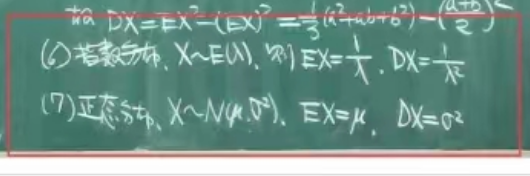 故 DX=EX²-(EX)²=\frac{1}{3}(a²+ab+b²)-(\frac{a+b}{2})²
(6)指数分布, X~E(λ), 则 EX=\frac{1}{λ}, DX=\frac{1}{λ²}
(7)正态分布, X~N(μ,σ²), EX=μ, DX=σ²